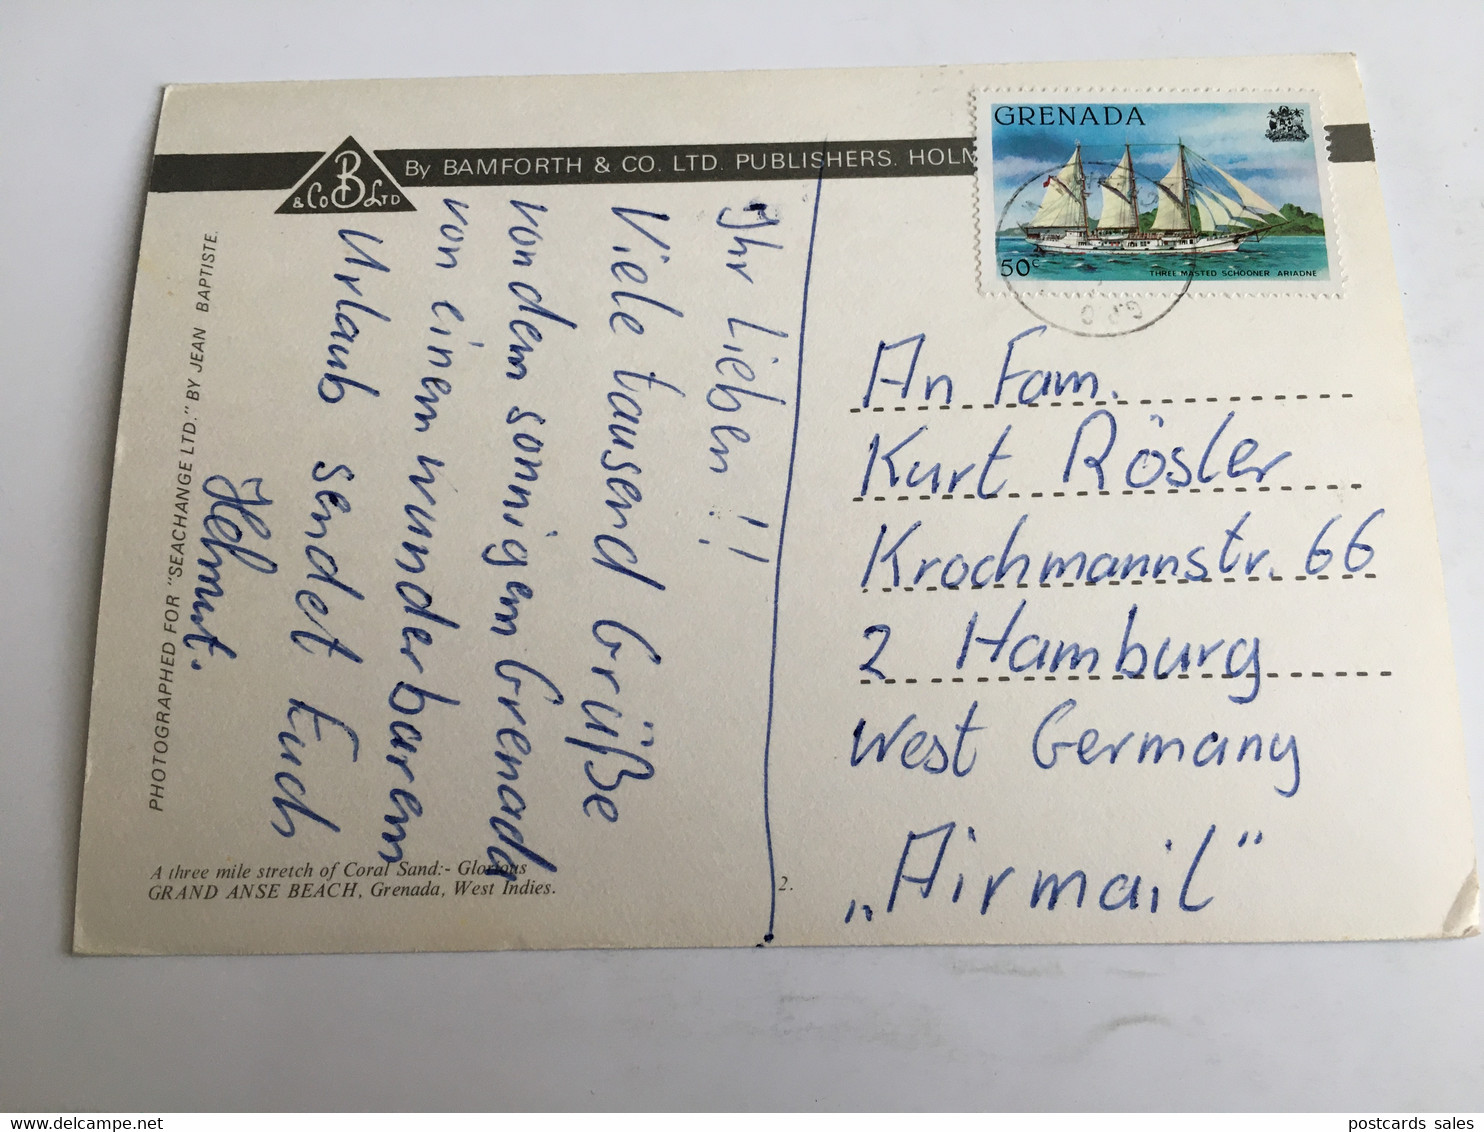 By BAMFORTH & CO. LTD. PUBLISHERS. HOLM
B
& Co LTD
GRENADA
50c
THREE MASTED SCHOONER ARIADNE
G.P.O
PHOTOGRAPHED FOR "SEACHANGE LTD." BY JEAN BAPTISTE.
Ihr Lieben!!
Viele tausend Grüße
von dem sonnigen Grenada
von einem wunderbaren
Urlaub sendet Euch
Helmut.
An Fam.
Kurt Rösler
Krochmannstr. 66
2 Hamburg
West Germany
„Airmail“
A three mile stretch of Coral Sand:- Glorious
GRAND ANSE BEACH, Grenada, West Indies.
2.
postcards sales